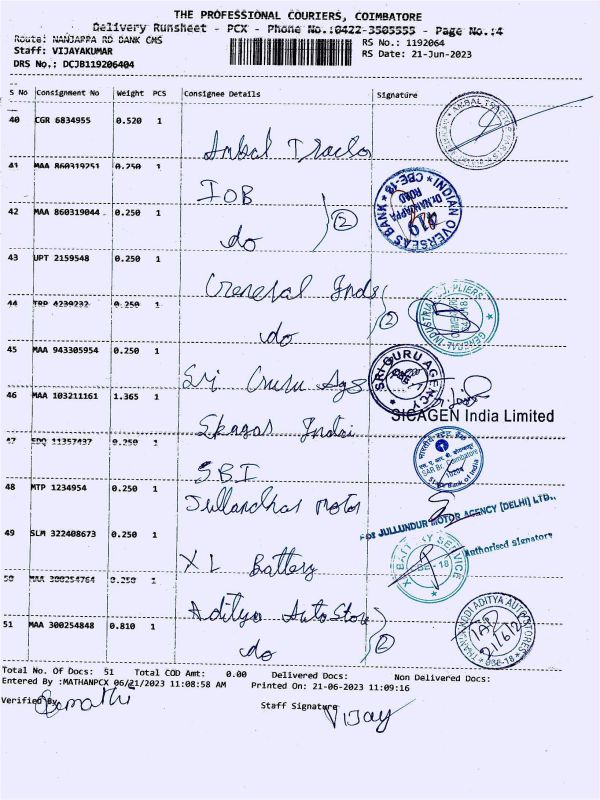 THE PROFESSIONAL COURIERS, COIMBATORE
Delivery Runsheet - PCX - Phone No.:0422-3505555 - Page No.:4
Route: NANJAPPA RD BANK CMS RS No.: 1192064
Staff: VIJAYAKUMAR RS Date: 21-Jun-2023
DRS No.: DCJB119206404
S No Consignment No Weight PCS Consignee Details Signature
40 CGR 6834955 0.520 1
Anbal Tractor
41 MAA 860319251 0.250 1
IOB
42 MAA 860319044 0.250 1
do
2
INDIAN OVERSEAS BANK
Dr.NANJAPPA
ROAD
CBE-18
419
43 UPT 2159548 0.250 1
General Inds
44 TRP 4239232 0.250 1
do
2
45 MAA 943305954 0.250 1
Sri Guru Ags
SRI GURU AGENCY
46 MAA 103211161 1.365 1
SICAGEN India Limited
47 EDQ 11357437 0.250 1
SBI
State Bank of India
48 MTP 1234954 0.250 1
Jullandhar Motor
For JULLUNDUR MOTOR AGENCY [DELHI] LTD.,
Authorised Signatory
49 SLM 322408673 0.250 1
XL Battery
50 MAA 300254764 0.250 1
Aditya Auto Store
51 MAA 300254848 0.810 1
do
2
ADITYA AUTO STORES
21/6/23
Total No. Of Docs: 51 Total COD Amt: 0.00 Delivered Docs: Non Delivered Docs:
Entered By :MATHANPCX 06/21/2023 11:08:58 AM Printed On: 21-06-2023 11:09:16
Verified By
Staff Signature
Vijay